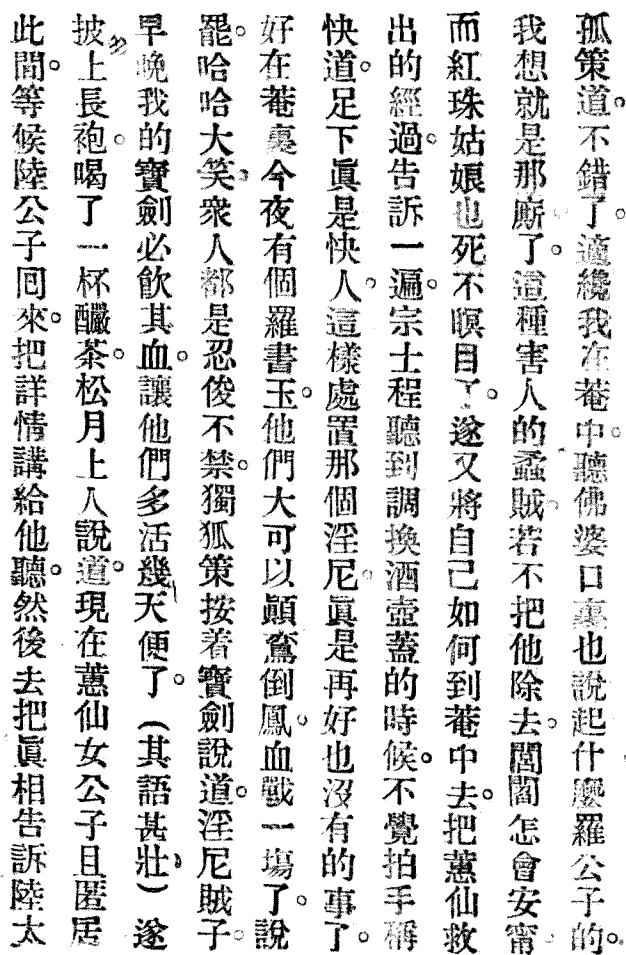 孤策道。不錯了。適纔我在菴中。聽佛婆口裏也說起什麼羅公子的。
我想就是那廝了。這種害人的蟊賊。若不把他除去。閭閻怎會安甯。
而紅珠姑娘也死不瞑目了。遂又將自己如何到菴中去。把蕙仙救
出的經過。告訴一遍。宗士程聽到調換酒壺蓋的時候。不覺拍手稱
快道。足下眞是快人。這樣處置那個淫尼。眞是再好也沒有的事了。
好在菴裏今夜有個羅書玉。他們大可以顚鸞倒鳳。血戰一塲了。說
罷。哈哈大笑。衆人都是忍俊不禁。獨狐策按着寶劍說道。淫尼賊子。
早晚我的寶劍必飲其血。讓他們多活幾天便了。（其語甚壯）遂
披上長袍。喝了一杯釅茶。松月上人說道。現在蕙仙女公子且匿居
此間。等候陸公子囘來。把詳情講給他聽。然後去把眞相告訴陸太